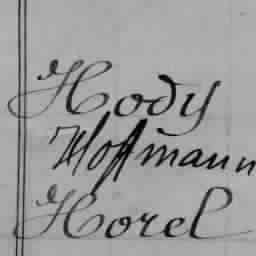 Hody
Hoffmann
Horel